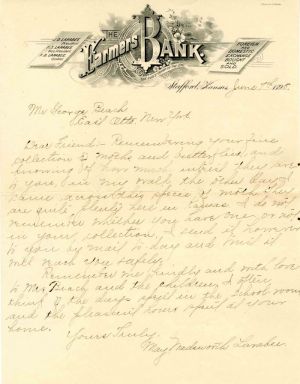 J.D. LARABEE
PRESIDENT
F.S. LARABEE
F.D. LARABEE
THE
Farmers Bank
FOREIGN
AND
DOMESTIC
EXCHANGE
BOUGHT
AND
SOLD.
Stafford, Kansas June 7th
Mr George Beach
East Otto, New York
Dear Friend:- Remembering your fine
collection of moths and butterflies, and
knowing of how much interest they are
to you, in my walk the other day I
came across this specie of moth. They
are quite plenty here in Kansas. I do not
remember whether you have one, or not
in your collection. I send it however
to you by mail to day and trust it
will reach you safely.
Remember me kindly and with love
to Mrs Beach and the children. I often
think of the days spent in the school room
and the pleasant hours spent at your
home.
Yours Truly,
May Larabee.